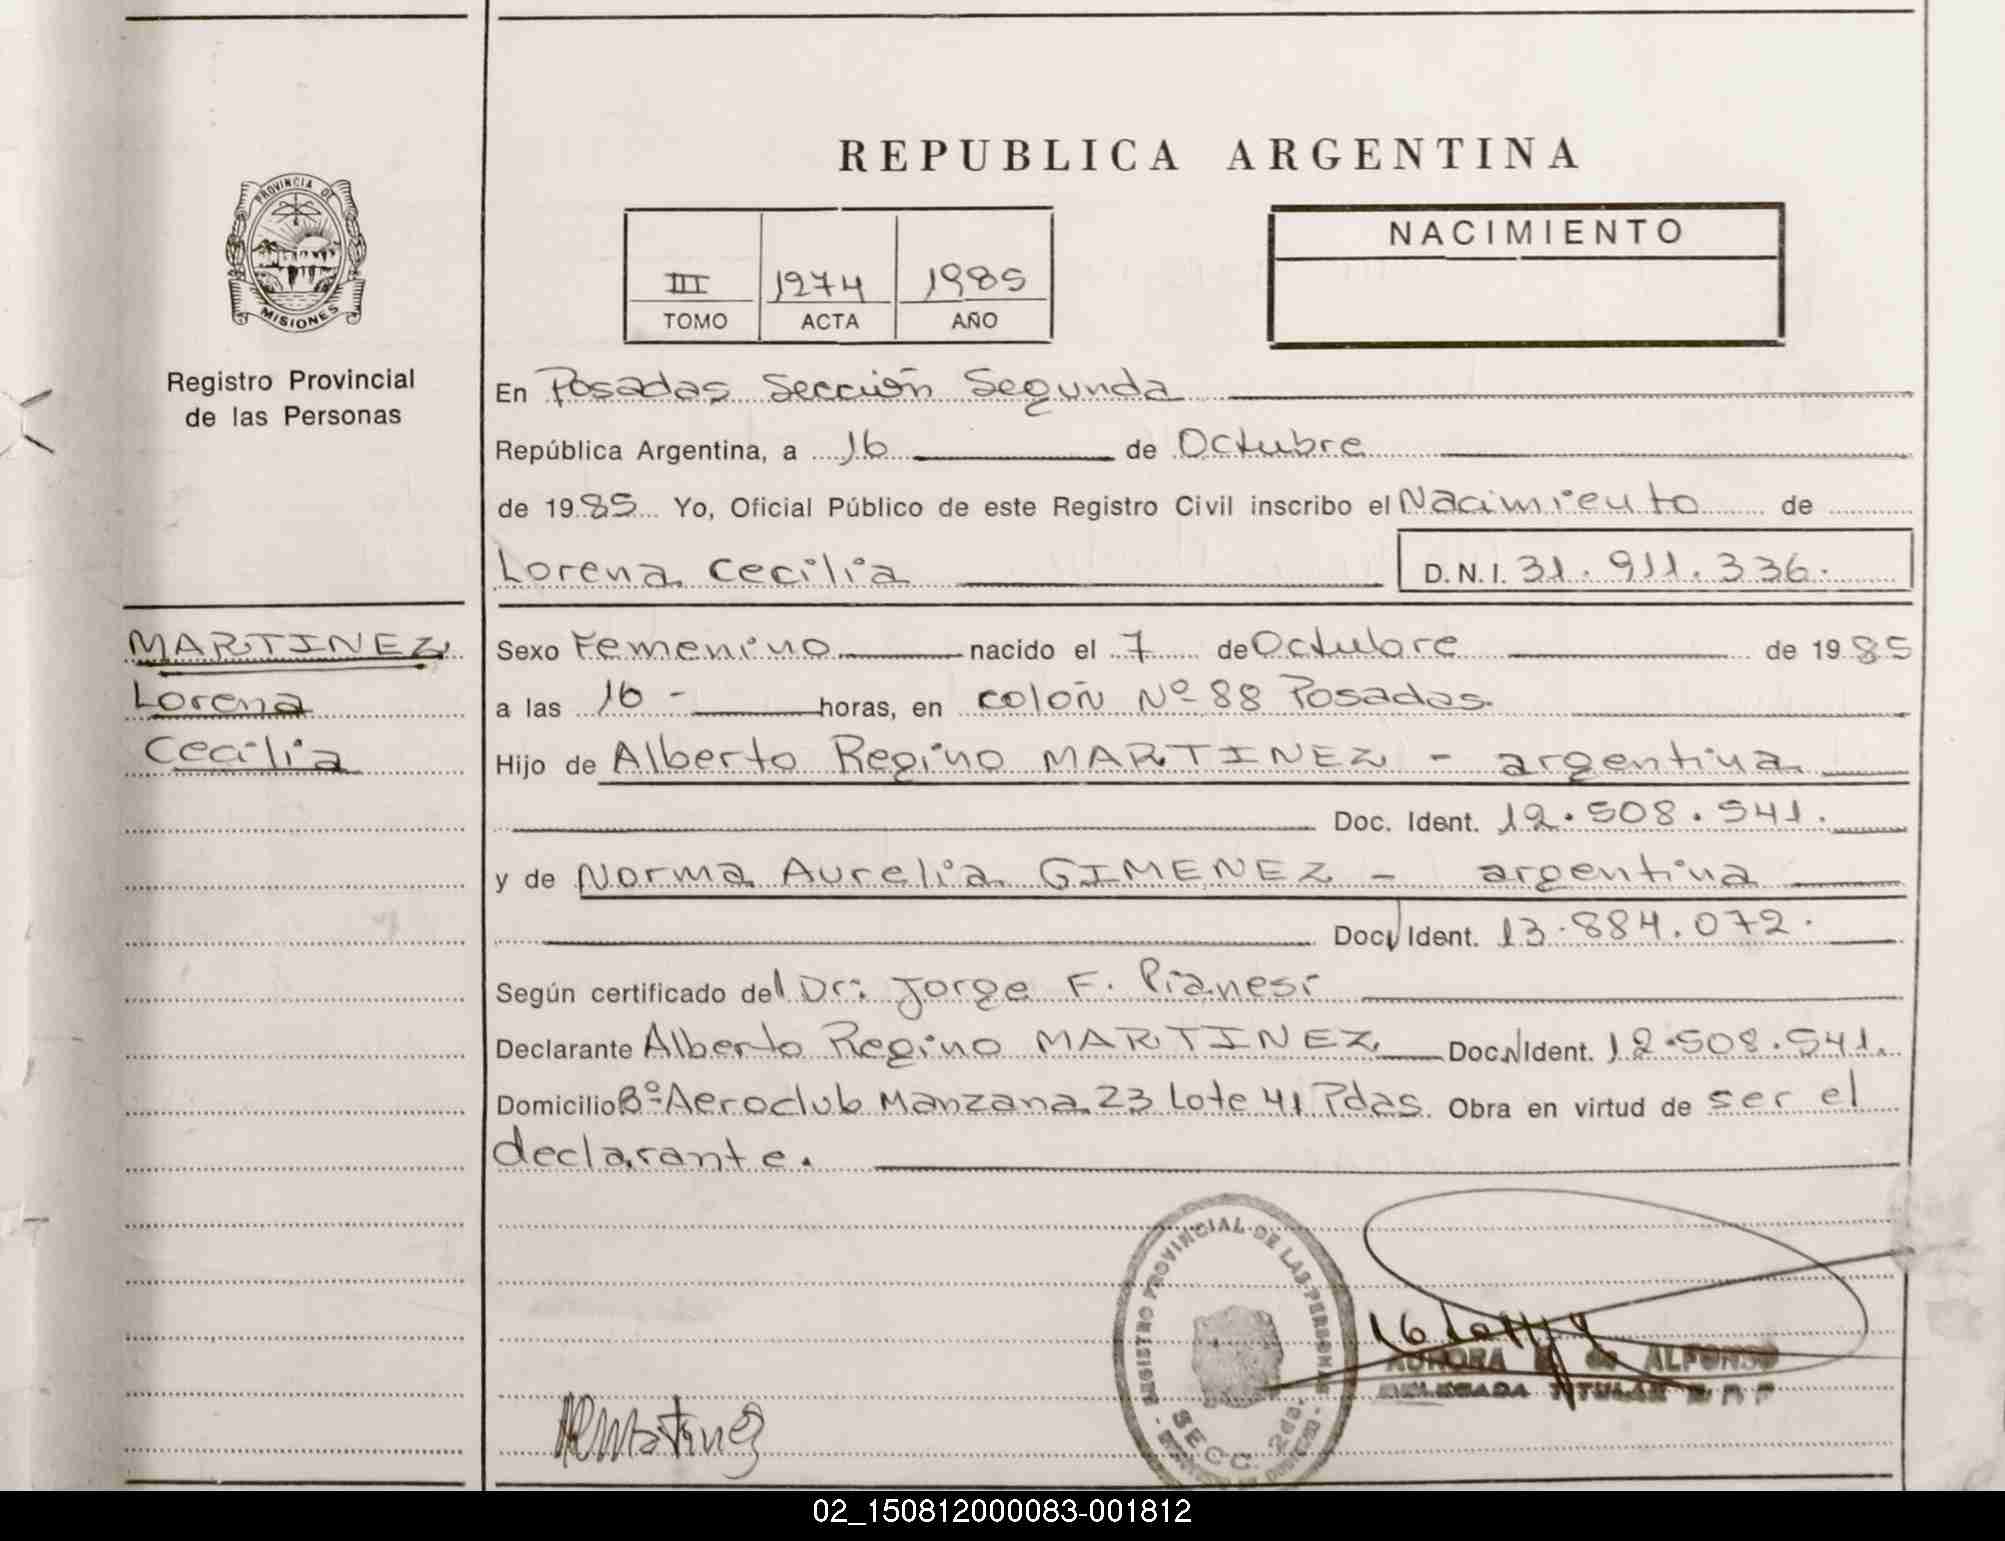 REPUBLICA ARGENTINA
PROVINCIA DE
MISIONES
Registro Provincial
de las Personas
III 1274 1985
TOMO ACTA AÑO
NACIMIENTO
En Posadas Sección Segunda
República Argentina, a 16 de Octubre
de 1985 Yo, Oficial Público de este Registro Civil inscribo el Nacimiento de
Lorena Cecilia D.N.I. 31.911.336.
MARTINEZ
Lorena
Cecilia
Sexo Femenino nacido el 7 de Octubre de 1985
a las 16 - horas, en colón Nº 88 Posadas.
Hijo de Alberto Regino MARTINEZ - argentina
Doc. Ident. 12.508.541.
y de Norma Aurelia GIMENEZ - argentina
Doc. Ident. 13.884.072.
Según certificado del Dr: Jorge F. Pianesi
Declarante Alberto Regino MARTINEZ Doc. Ident. 12.508.541.
Domicilio Bº Aeroclub Manzana 23 Lote 41 Pdas. Obra en virtud de ser el
declarante.
REGISTRO PROVINCIAL DE LAS PERSONAS
SECC. 2da.
AURORA de ALFONSO
DELEGADA TITULAR
02_150812000083-001812